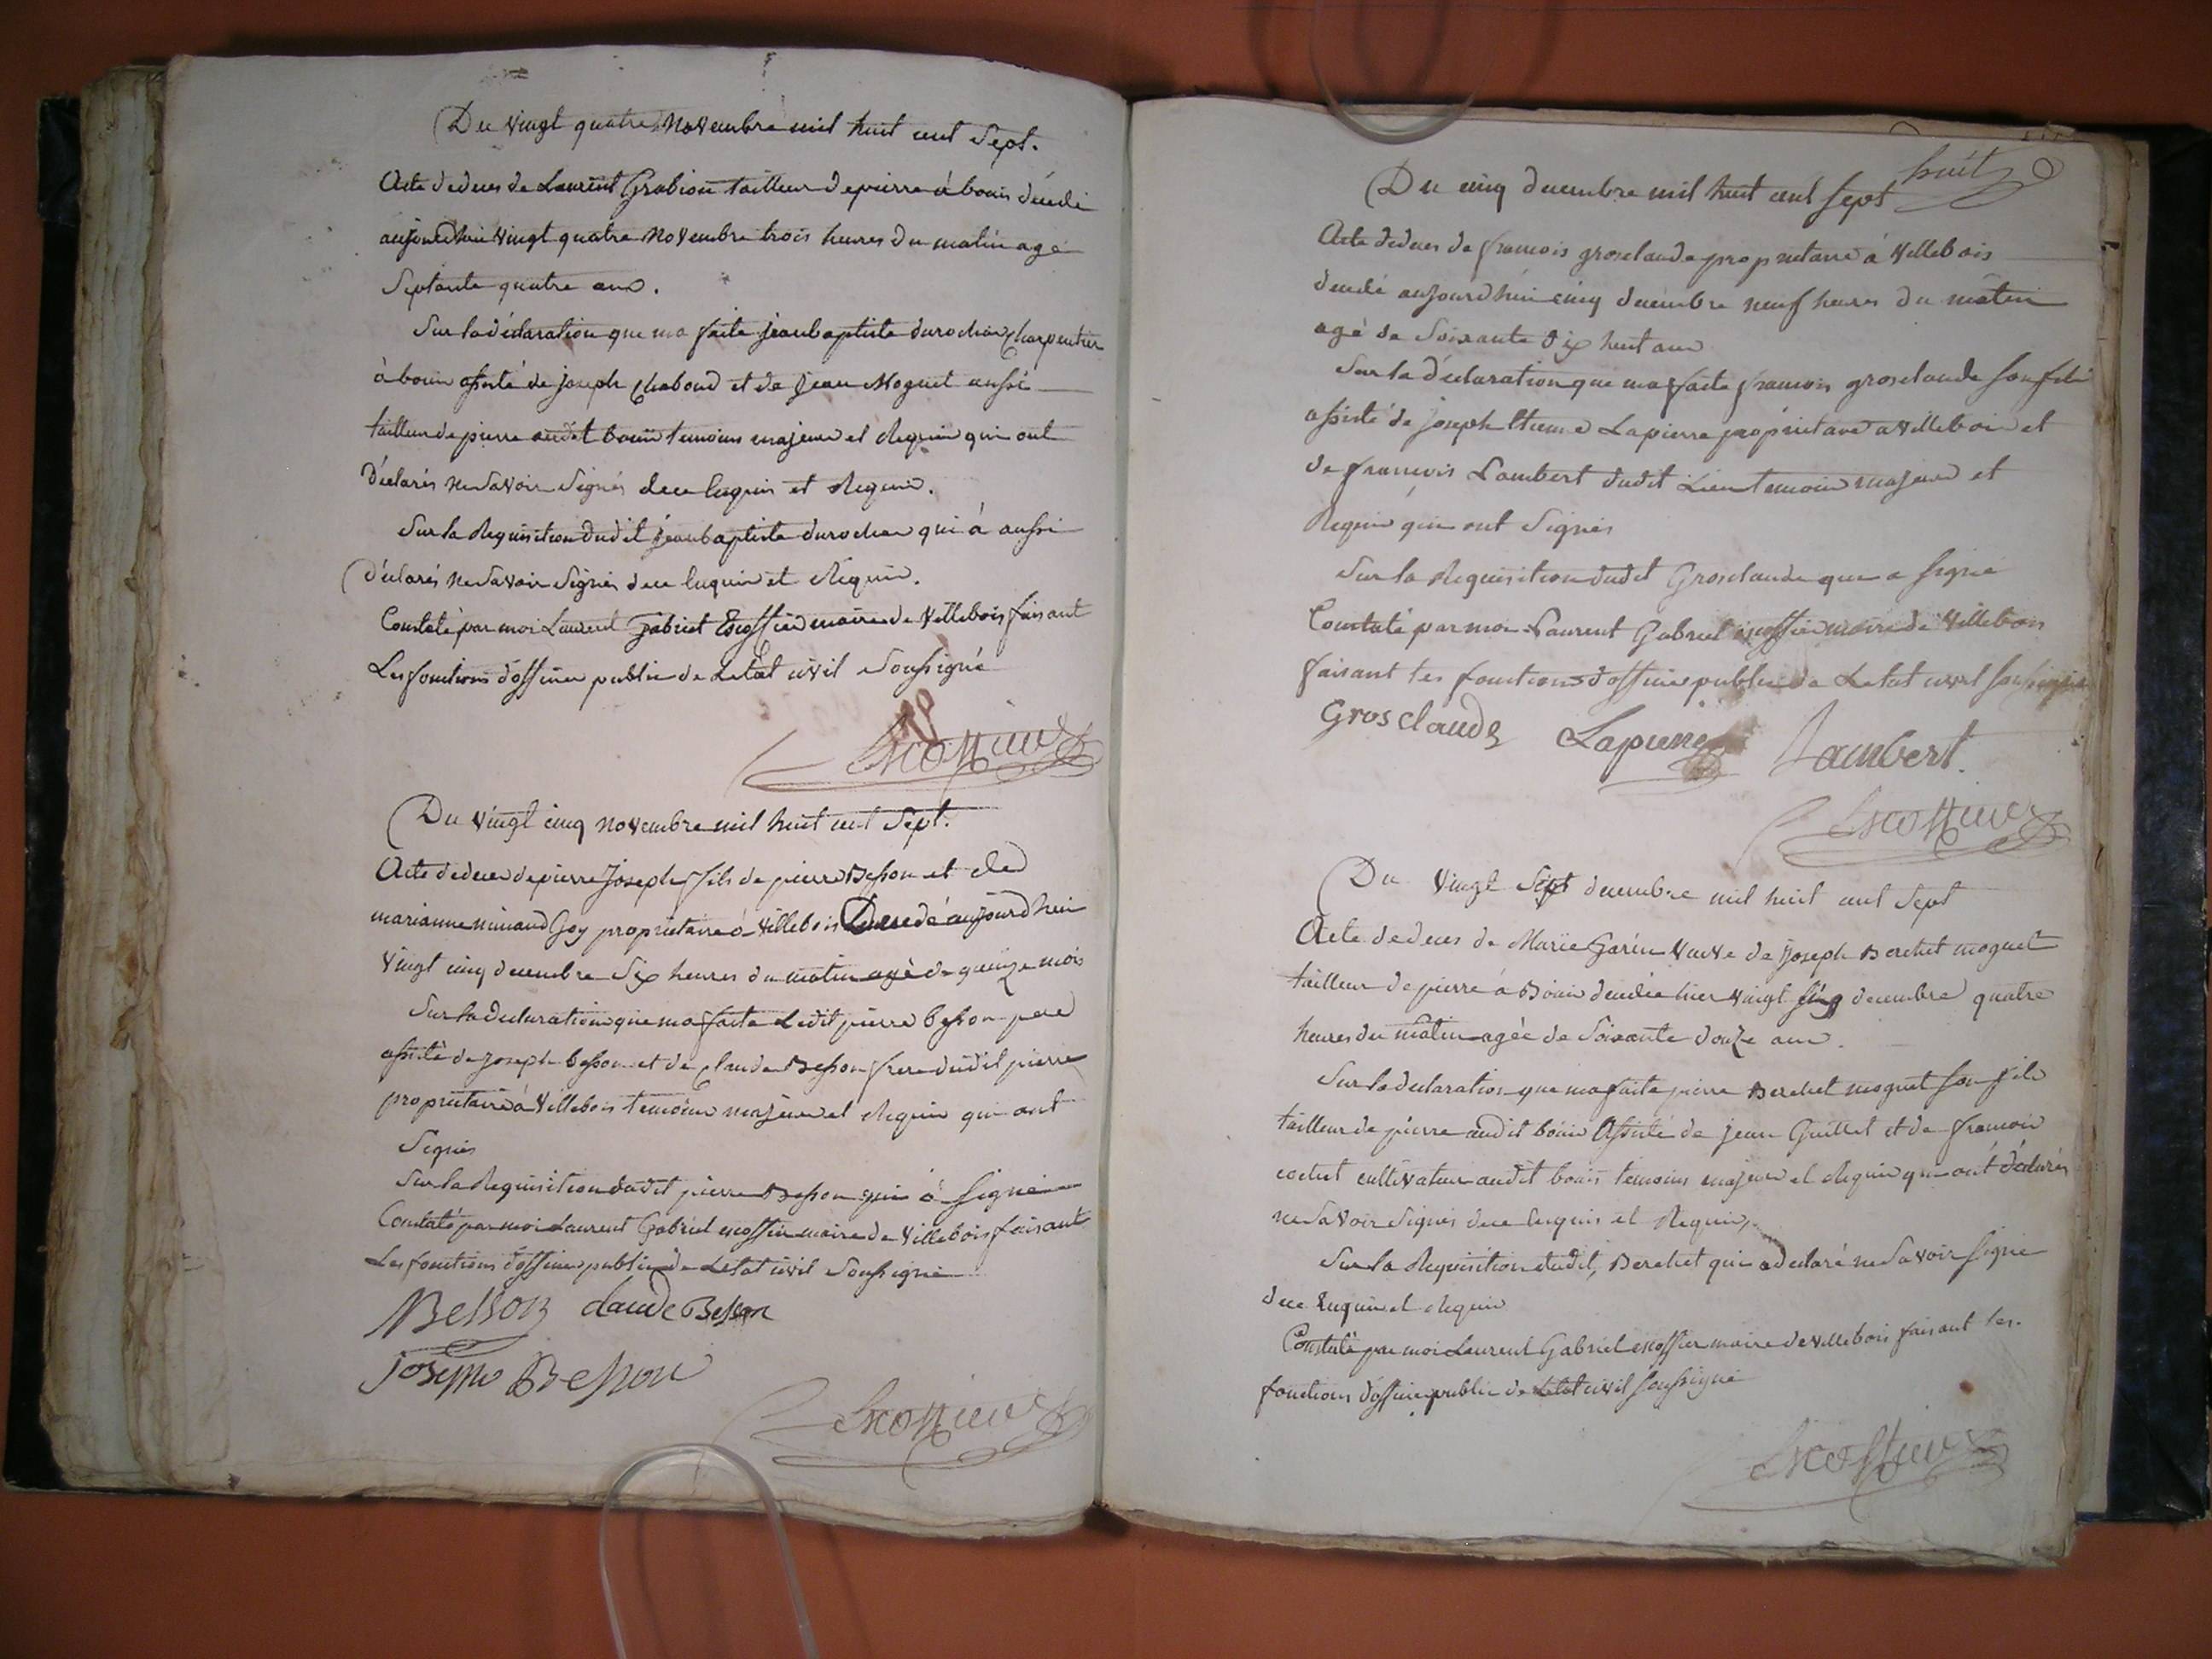 Du vingt quatre Novembre mil huit cent Sept.
Acte de deces de Laurent Grabion tailleur de pierre à bouis décédé
aujourdhui vingt quatre Novembre trois heures du matin agé
Septante quatre ans.
Sur la déclaration que ma faite jean baptiste durochat Charpentier
à bouis assisté de joseph Chaboud et de Jean Moguet aussi
tailleur de pierre audit bouis temoins majeurs et Requis qui ont
déclarés ne Savoir Signés de ce Enquis et Requis.
Sur la Requisition dudit jean baptiste durochat qui à aussi
déclarés ne Savoir Signés de ce Enquis et Requis.
Constaté par moi Laurent Gabriel Escoffier maire de Villebois faisant
Les fonctions d'officier public de Letat civil Soussigné
Escoffier
Du vingt cinq Novembre mil huit cent Sept.
Acte de deces de pierre Joseph fils de pierre Besson et de
marianne Goy propriétaire à Villebois Décédé aujourdhui
vingt cinq decembre Six heures du matin agé de quinze mois
Sur la declaration que ma faite Ledit pierre besson pere
assisté de joseph besson et de Claude Besson frere dudit pierre
propriétaire à Villebois temoins majeurs et Requis qui ont
Signés
Sur la Requisition dudit pierre Besson qui à Signé
Constaté par moi Laurent Gabriel escoffier maire de Villebois faisant
Les fonctions d'officier public de Letat civil Soussigné
Besson claude Besson
joseph Besson
Escoffier
huit
Du cinq decembre mil huit cent sept
Acte de deces de francois grosclaude propriétaire à Villebois
decedé aujourdhui cinq decembre neuf heures du matin
agé de Soixante dix huit ans
Sur la déclaration que ma faite francois grosclaude son fils
assisté de joseph Lapierre propriétaire a Villebois et
de françois Lambert dudit Lieu temoins majeurs et
Requis qui ont Signés
Sur la Requisition dudit Grosclaude que a signé
Constaté par moi Laurent Gabriel escoffier maire de Villebois
faisant les fonctions d'officier public de Letat civil soussigné
Grosclaude Lapierre Lambert.
Escoffier
Du vingt Sept decembre mil huit cent Sept
Acte de deces de Marie Garin veuve de Joseph Berchet moguet
tailleur de pierre à Bouis décédée hier vingt decembre quatre
heures du matin agée de Soixante douze ans.
Sur la declaration que ma faite pierre Berchet moguet son fils
tailleur de pierre audit bouis Assisté de jean Guillet et de francois
cochet cultivateur audit bouis temoins majeurs et Requis qui ont déclarés
ne Savoir Signés de ce enquis et Requis,
Sur la Requisition dudit, Berchet qui a declaré ne Savoir signé
de ce Enquis et Requis
Constaté par moi Laurent Gabriel escoffier maire de villebois faisant les.
fonctions d'officier public de Letat civil soussigné
Escoffier